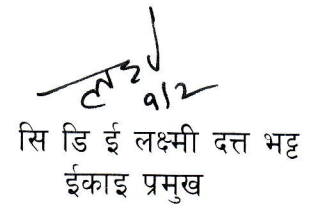 ९/२
सि डि ई लक्ष्मी दत्त भट्ट
ईकाइ प्रमुख